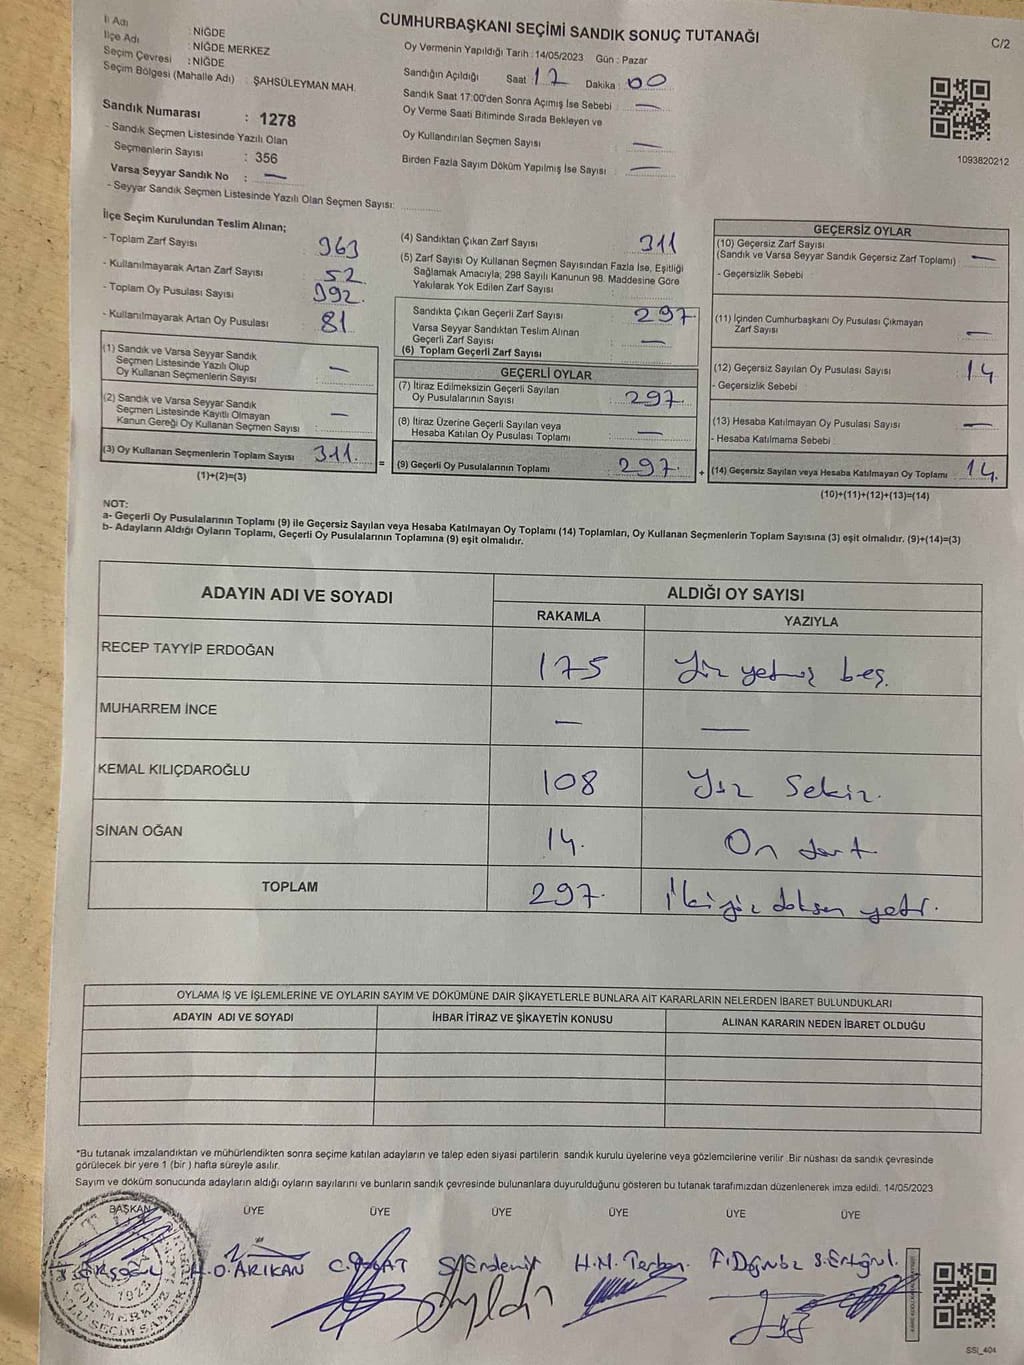 CUMHURBAŞKANI SEÇİMİ SANDIK SONUÇ TUTANAĞI
C/2
İl Adı : NİĞDE
İlçe Adı : NİĞDE MERKEZ
Seçim Çevresi : NİĞDE
Seçim Bölgesi (Mahalle Adı) : ŞAHSÜLEYMAN MAH.
Oy Vermenin Yapıldığı Tarih : 14/05/2023 Gün : Pazar
Sandığın Açıldığı Saat : 17 Dakika : 00
Sandık Saat 17:00'den Sonra Açılmış İse Sebebi : —
Oy Verme Saati Bitiminde Sırada Bekleyen ve
Oy Kullandırılan Seçmen Sayısı : —
Birden Fazla Sayım Döküm Yapılmış İse Sayısı : —
1093820212
Sandık Numarası : 1278
- Sandık Seçmen Listesinde Yazılı Olan
Seçmenlerin Sayısı : 356
Varsa Seyyar Sandık No : —
- Seyyar Sandık Seçmen Listesinde Yazılı Olan Seçmen Sayısı:
İlçe Seçim Kurulundan Teslim Alınan;
- Toplam Zarf Sayısı : 363
- Kullanılmayarak Artan Zarf Sayısı : 52
- Toplam Oy Pusulası Sayısı : 392.
- Kullanılmayarak Artan Oy Pusulası : 81
(1) Sandık ve Varsa Seyyar Sandık
Seçmen Listesinde Yazılı Olup
Oy Kullanan Seçmenlerin Sayısı : —
(2) Sandık ve Varsa Seyyar Sandık
Seçmen Listesinde Kayıtlı Olmayan
Kanun Gereği Oy Kullanan Seçmen Sayısı : —
(3) Oy Kullanan Seçmenlerin Toplam Sayısı : 311.
(1)+(2)=(3)
(4) Sandıktan Çıkan Zarf Sayısı : 311
(5) Zarf Sayısı Oy Kullanan Seçmen Sayısından Fazla İse, Eşitliği
Sağlamak Amacıyla, 298 Sayılı Kanunun 98. Maddesine Göre
Yakılarak Yok Edilen Zarf Sayısı :
Sandıkta Çıkan Geçerli Zarf Sayısı : 297
Varsa Seyyar Sandıktan Teslim Alınan
Geçerli Zarf Sayısı : —
(6) Toplam Geçerli Zarf Sayısı
GEÇERLİ OYLAR
(7) İtiraz Edilmeksizin Geçerli Sayılan
Oy Pusulalarının Sayısı : 297.
(8) İtiraz Üzerine Geçerli Sayılan veya
Hesaba Katılan Oy Pusulası Toplamı : —
= (9) Geçerli Oy Pusulalarının Toplamı : 297.
GEÇERSİZ OYLAR
(10) Geçersiz Zarf Sayısı
(Sandık ve Varsa Seyyar Sandık Geçersiz Zarf Toplamı) : —
- Geçersizlik Sebebi :
(11) İçinden Cumhurbaşkanı Oy Pusulası Çıkmayan
Zarf Sayısı : —
(12) Geçersiz Sayılan Oy Pusulası Sayısı : 14
- Geçersizlik Sebebi :
(13) Hesaba Katılmayan Oy Pusulası Sayısı : —
- Hesaba Katılmama Sebebi :
+ (14) Geçersiz Sayılan veya Hesaba Katılmayan Oy Toplamı : 14.
(10)+(11)+(12)+(13)=(14)
NOT:
a- Geçerli Oy Pusulalarının Toplamı (9) ile Geçersiz Sayılan veya Hesaba Katılmayan Oy Toplamı (14) Toplamları, Oy Kullanan Seçmenlerin Toplam Sayısına (3) eşit olmalıdır. (9)+(14)=(3)
b- Adayların Aldığı Oyların Toplamı, Geçerli Oy Pusulalarının Toplamına (9) eşit olmalıdır.
ADAYIN ADI VE SOYADI ALDIĞI OY SAYISI
RAKAMLA YAZIYLA
RECEP TAYYİP ERDOĞAN 175 Yüz yetmiş beş.
MUHARREM İNCE — —
KEMAL KILIÇDAROĞLU 108 Yüz Sekiz.
SİNAN OĞAN 14. On dört
TOPLAM 297. İkiyüz doksan yedi.
OYLAMA İŞ VE İŞLEMLERİNE VE OYLARIN SAYIM VE DÖKÜMÜNE DAİR ŞİKAYETLERLE BUNLARA AİT KARARLARIN NELERDEN İBARET BULUNDUKLARI
ADAYIN ADI VE SOYADI İHBAR İTİRAZ VE ŞİKAYETİN KONUSU ALINAN KARARIN NEDEN İBARET OLDUĞU
*Bu tutanak imzalandıktan ve mühürlendikten sonra seçime katılan adayların ve talep eden siyasi partilerin sandık kurulu üyelerine veya gözlemcilerine verilir .Bir nüshası da sandık çevresinde
görülecek bir yere 1 (bir ) hafta süreyle asılır.
Sayım ve döküm sonucunda adayların aldığı oyların sayılarını ve bunların sandık çevresinde bulunanlara duyurulduğunu gösteren bu tutanak tarafımızdan düzenlenerek imza edildi. 14/05/2023
BAŞKAN ÜYE ÜYE ÜYE ÜYE ÜYE ÜYE
H.O.ARIKAN S.Ertuğrul.
SSI_404